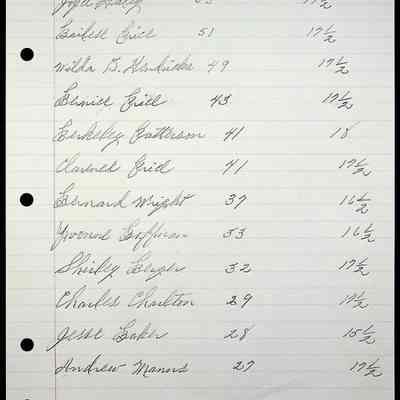 Joyce 17½
51 17½
Wilda B. Hendricks 49 17½
Bernice 43 17½
Berkeley Patterson 41 18
Clarence 41 17½
Bernard Wright 37 16½
Yvonne Hoffman 33 16½
Shirley 32 17½
Charles Charlton 29 17½
Jesse Baker 28 15½
Andrew Manns 27 17½